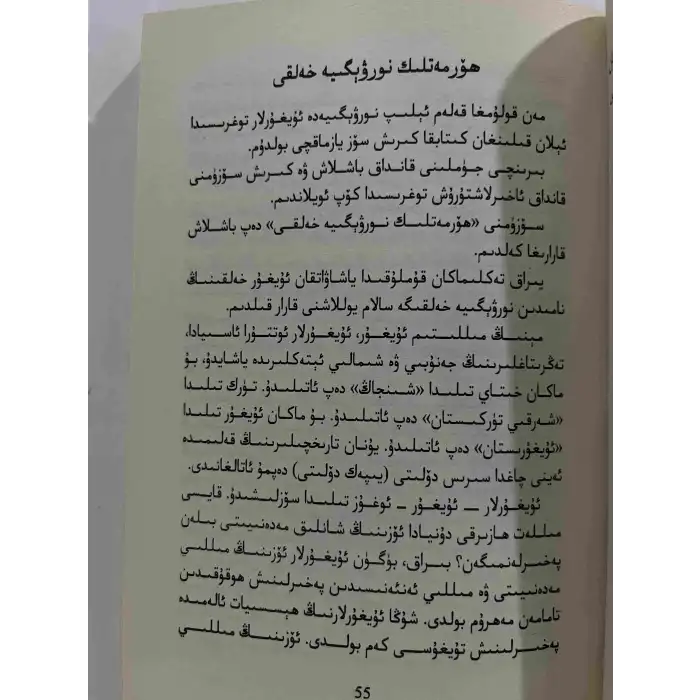 ھۆرمەتلىك نورۋېگىيە خەلقى
مەن قولۇمغا قەلەم ئېلىپ نورۋېگىيەدە ئۇيغۇرلار توغرىسىدا
ئېلان قىلىنغان كىتابقا كىرىش سۆز يازماقچى بولدۇم.
بىرىنچى جۈملىنى قانداق باشلاش ۋە كىرىش سۆزۈمنى
قانداق ئاخىرلاشتۇرۇش توغرىسىدا كۆپ ئويلاندىم.
سۆزۈمنى «ھۆرمەتلىك نورۋېگىيە خەلقى» دەپ باشلاش
قارارىغا كەلدىم.
يىراق تەكلىماكان قۇملۇقىدا ياشاۋاتقان ئۇيغۇر خەلقىنىڭ
نامىدىن نورۋېگىيە خەلقىگە سالام يوللاشنى قارار قىلدىم.
مېنىڭ مىللىتىم ئۇيغۇر، ئۇيغۇرلار ئوتتۇرا ئاسىيادا،
تەڭرىتاغلىرىنىڭ جەنۇبىي ۋە شىمالىي ئېتەكلىرىدە ياشايدۇ، بۇ
ماكان خىتاي تىلىدا «شىنجاڭ» دەپ ئاتىلىدۇ. تۈرك تىلىدا
«شەرقىي تۈركىستان» دەپ ئاتىلىدۇ. بۇ ماكان ئۇيغۇر تىلىدا
«ئۇيغۇرىستان» دەپ ئاتىلىدۇ. يۇنان تارىخچىلىرىنىڭ قەلىمىدە
ئەينى چاغدا سىرىس دۆلىتى (يىپەك دۆلىتى) دەپمۇ ئاتالغانىدى.
ئۇيغۇرلار — ئۇيغۇر – ئوغۇز تىلىدا سۆزلىشىدۇ. قايسى
مىللەت ھازىرقى دۇنيادا ئۆزىنىڭ شانلىق مەدەنىيىتى بىلەن
پەخىرلەنمىگەن؟ بىراق، بۈگۈن ئۇيغۇرلار ئۆزىنىڭ مىللىي
مەدەنىيىتى ۋە مىللىي ئەنئەنىسىدىن پەخىرلىنىش ھوقۇقىدىن
تامامەن مەھرۇم بولدى. شۇڭا ئۇيغۇرلارنىڭ ھېسسىيات ئالەمىدە
پەخىرلىنىش تۇيغۇسى كەم بولدى. ئۆزىنىڭ مىللىي
55